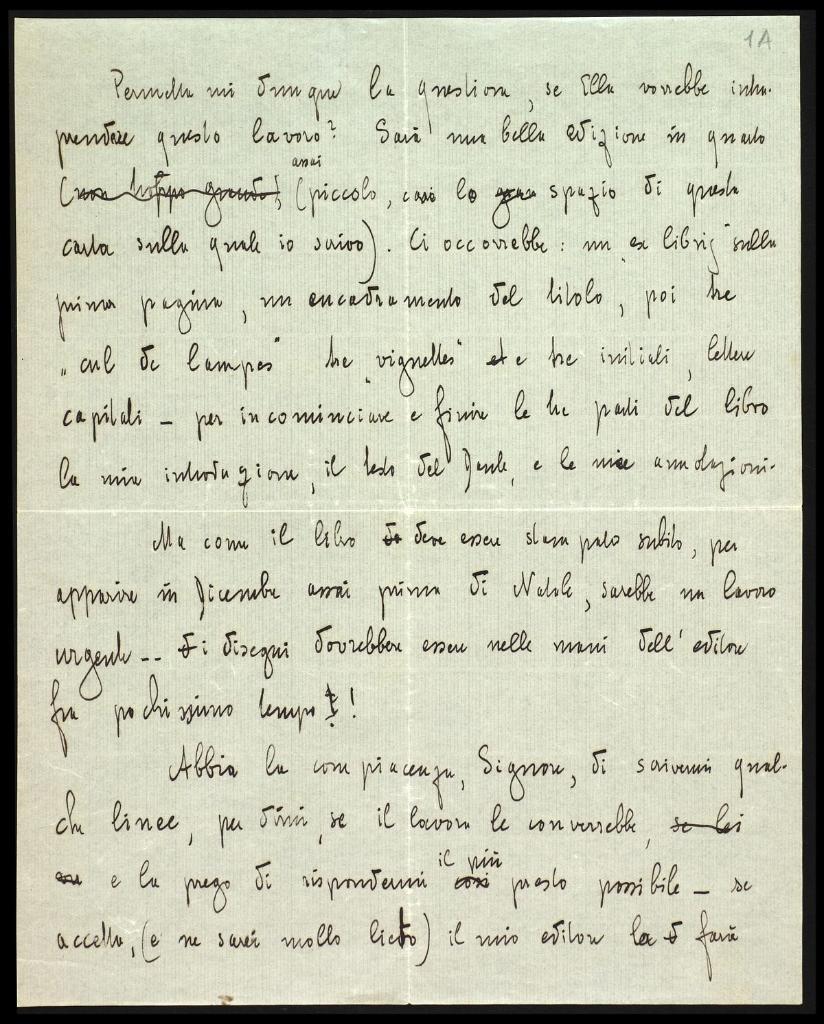 1A
Permetta mi dunque la questione, se Ella vorrebbe intra-
prendere questo lavoro? Sarà una bella edizione in quarto
(non troppo grande) (assai piccolo, così lo gran spazio di questa
carta sulla quale io scrivo). Ci occorrebbe: un „ex libris" sulla
prima pagina, un encadramento del titolo, poi tre
„cul de lampes" tre „vignettes" et e tre initiali, lettere
capitali – per incominciare e finire le tre parti del libro
la mia introduzione, il testo del Dante, e le mie annotazioni.
Ma come il libro do deve essere stampato subito, per
apparire in Dicembre assai prima di Natale, sarebbe un lavoro
urgente -- i disegni dovrebbero essere nelle mani dell' editore
fra pochissimo tempo!
Abbia la compiacenza, Signore, di scrivermi qual-
che linee, per dirmi, se il lavoro le converrebbe, se lei
e la prego di rispondermi così il più presto possibile – se
accetta, (e ne sarei molto lieto) il mio editore la farà